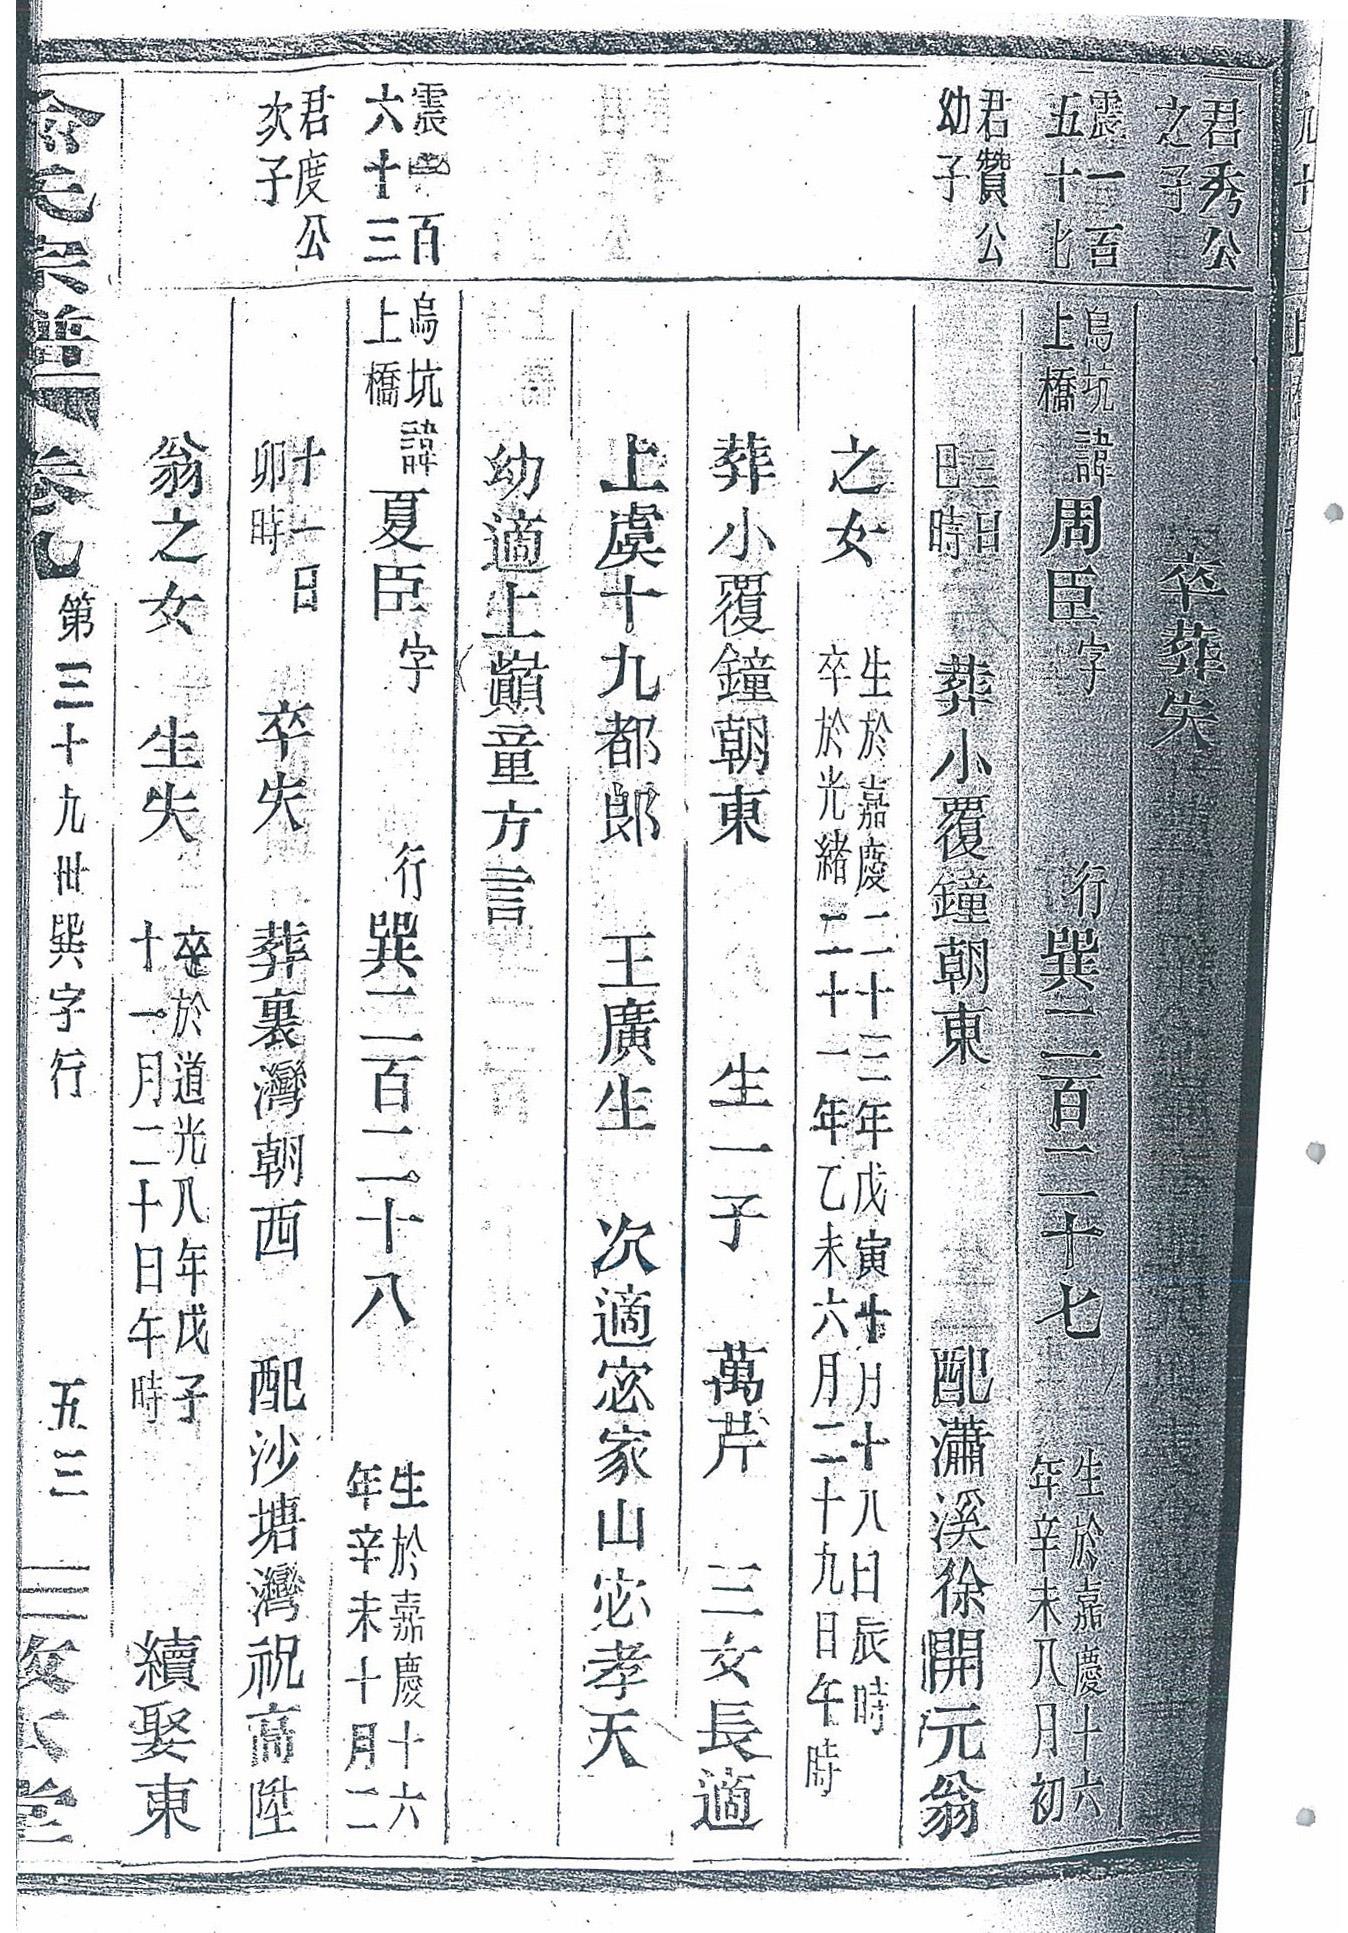 君秀公
之子
卒葬失
震一百
五十七
烏坑
上橋
諱周臣字
行巽二百二十七
生於嘉慶十六
年辛未八月初
君贊公
幼子
三日
巳時
葬小覆鐘朝東
配瀟溪徐開元翁
之女
生於嘉慶二十三年戊寅十月十八日辰時
卒於光緒二十一年乙未六月二十九日午時
葬小覆鐘朝東 生一子 萬芹 三女長適
上虞十九都郎 王廣生 次適宓家山宓孝天
幼適上巔童方言
震一百
六十三
烏坑
上橋
諱夏臣字
行巽二百二十八
生於嘉慶十六
年辛未十月二
君度公
次子
十一日
卯時
卒失 葬裏灣朝西 配沙塘灣祝高陞
翁之女 生失
卒於道光八年戊子
十一月二十日午時
續娶東
俞氏宗譜 卷九 第三十九卅巽字行 五三 堂